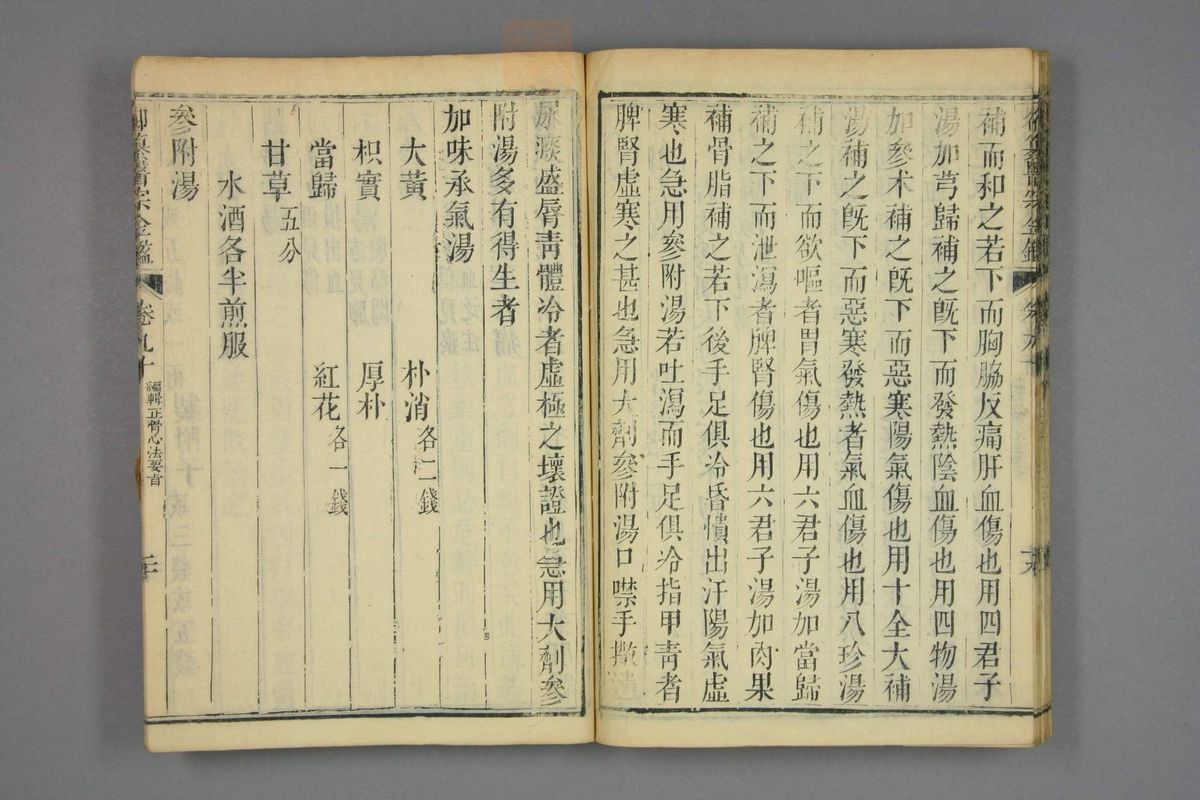 補而和之若下而胸脇反痛肝血傷也用四君子
湯加芎歸補之既下而發熱陰血傷也用四物湯
加參术補之既下而惡寒陽氣傷也用十全大補
湯補之既下而惡寒發熱者氣血傷也用八珍湯
補之下而欲嘔者胃氣傷也用六君子湯加當歸
補之下而泄瀉者脾腎傷也用六君子湯加肉果
補骨脂補之若下後手足俱冷昏憒出汗陽氣虛
寒也急用參附湯若吐瀉而手足俱冷指甲青者
脾腎虛寒之甚也急用大劑參附湯口噤手撒遺
尿痰盛唇青體冷者虛極之壞證也急用大劑參
附湯多有得生者
加味承氣湯
大黃 朴消各二錢
枳實 厚朴
當歸 紅花各一錢
甘草五分
水酒各半煎服
參附湯
御纂醫宗金鑑 卷九十 編輯正骨心法要旨 二十